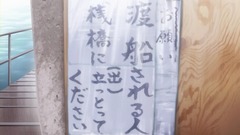 お願い
渡船される人
(出)
桟橋に立っとって
ください